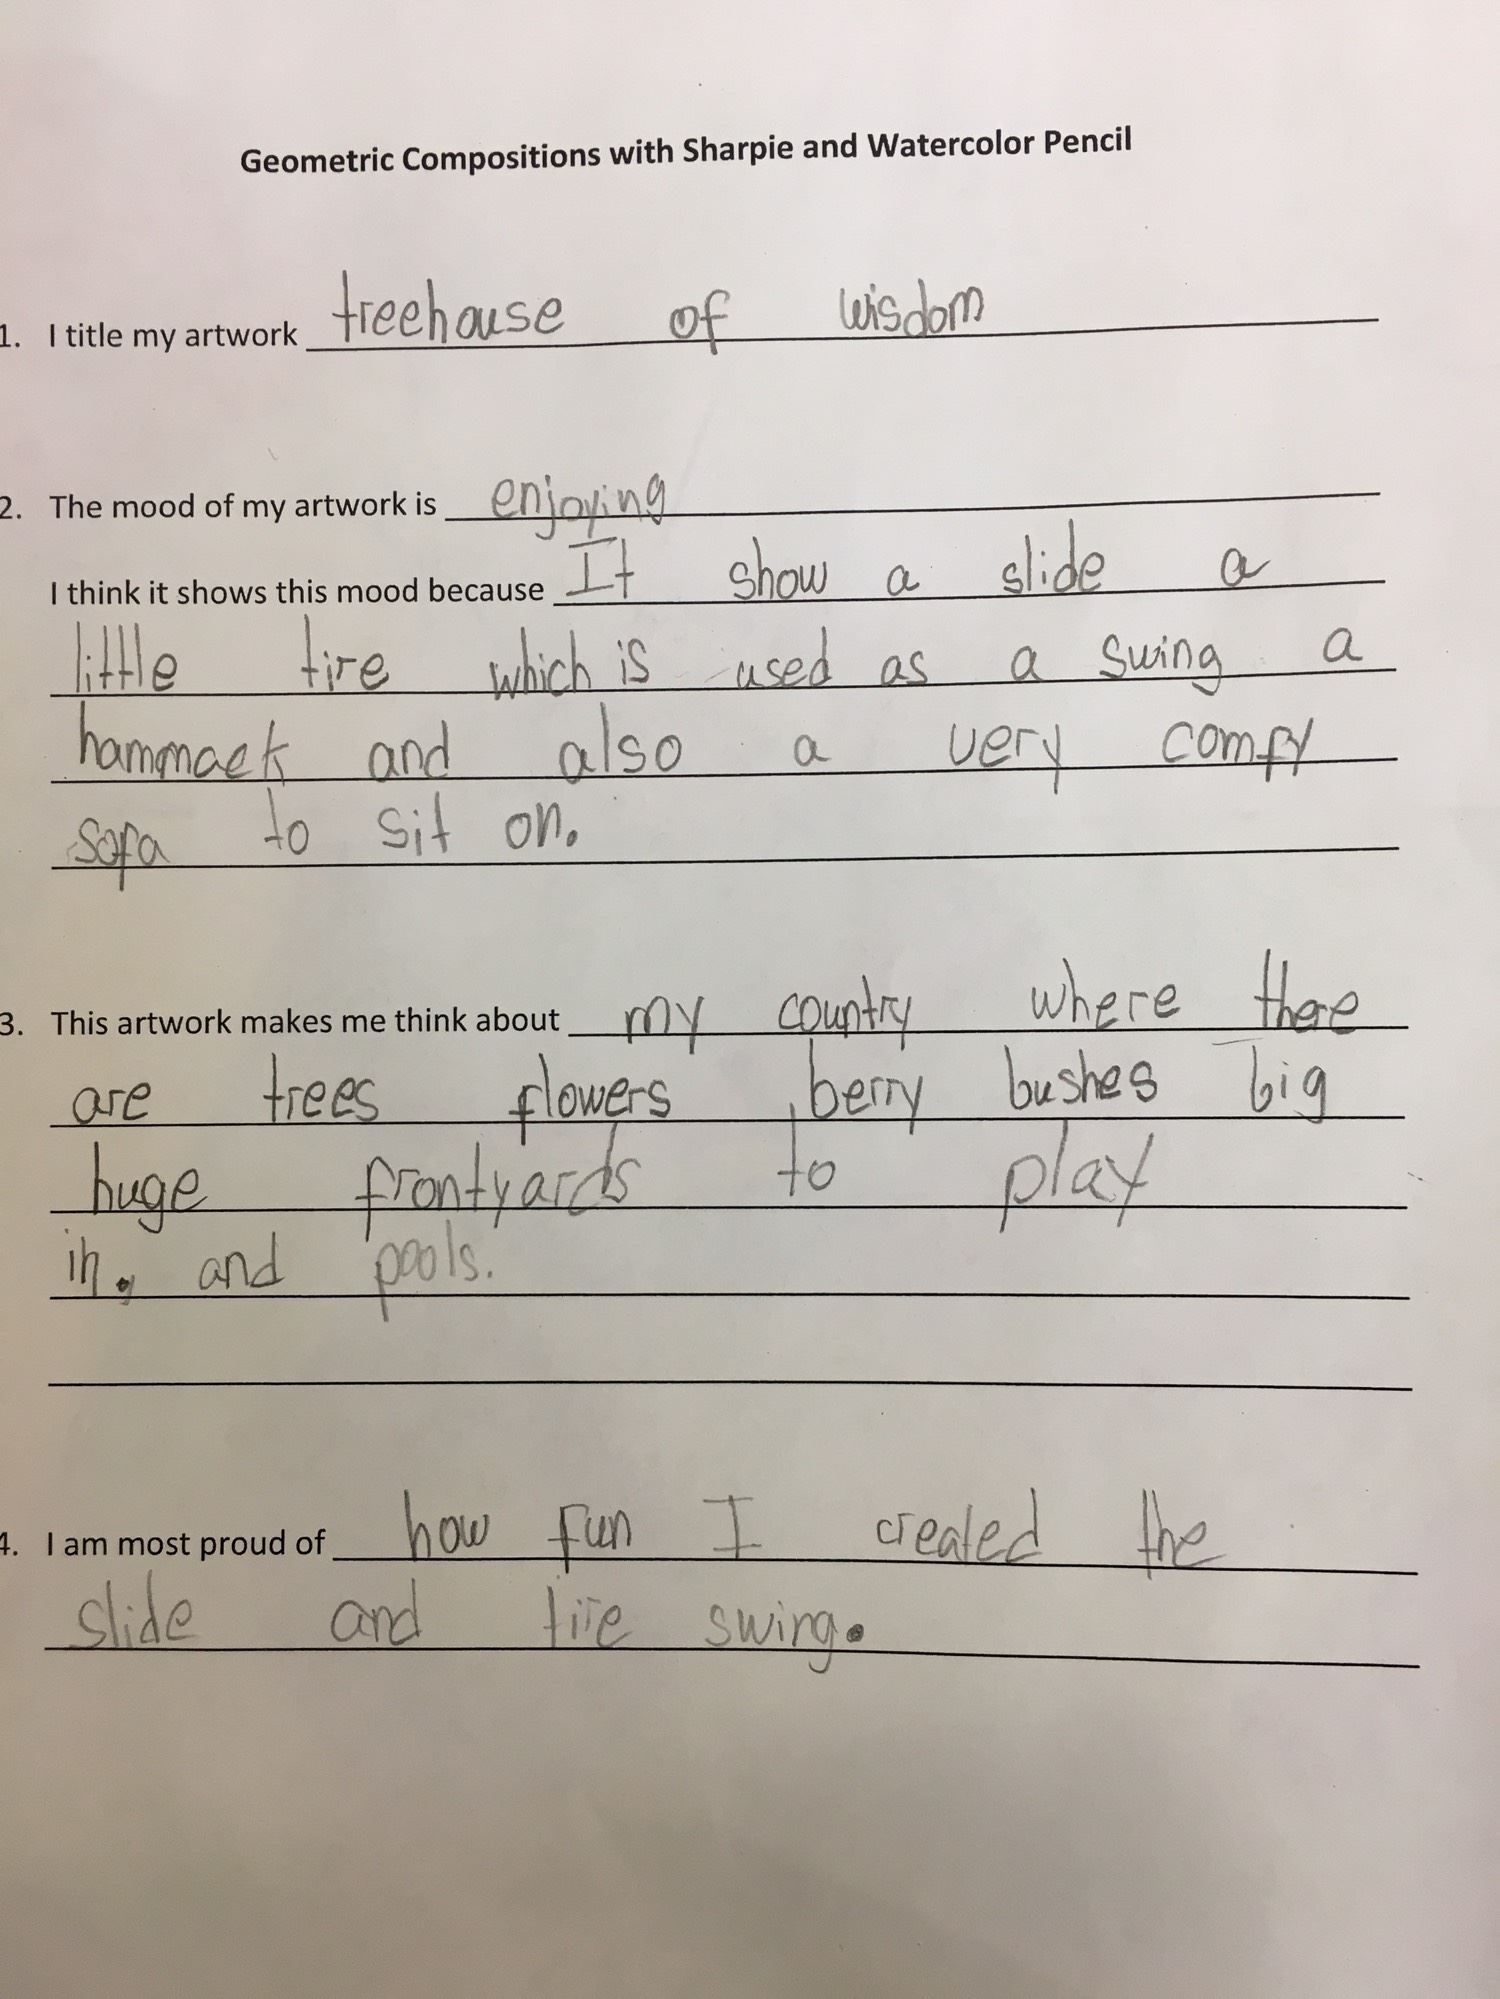 Geometric Compositions with Sharpie and Watercolor Pencil
1. I title my artwork treehouse of wisdom
2. The mood of my artwork is enjoying
I think it shows this mood because It show a slide a
little tire which is used as a swing a
hammack and also a very comfy
sofa to sit on.
3. This artwork makes me think about my country where there
are trees flowers , berry bushes big
huge frontyards to play
in, and pools.
4. I am most proud of how fun I created the
slide and tire swing.